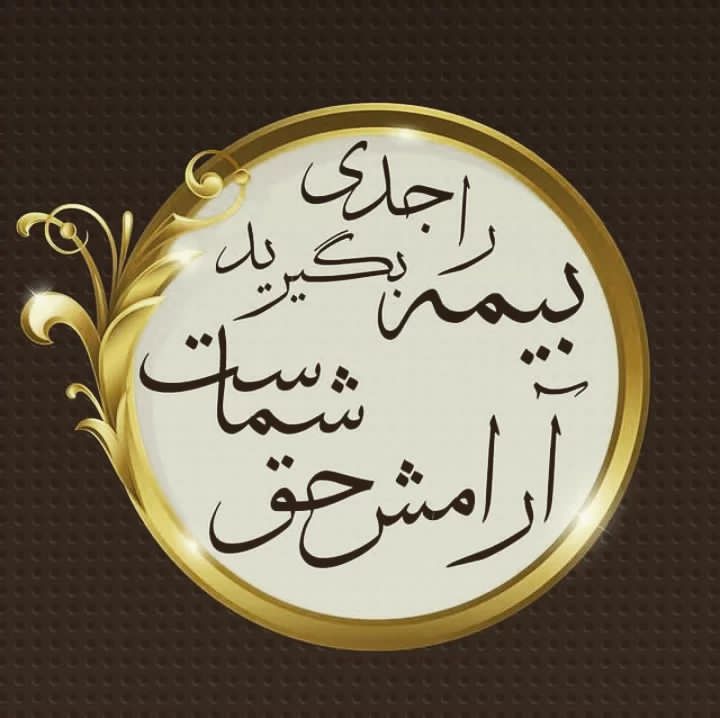 بیمه را جدی بگیرید
آرامش حق شماست